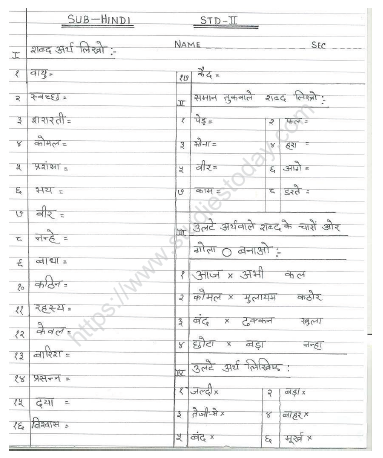 SUB-HINDI STD-II
NAME SEC
I शब्द अर्थ लिखो :-
१ वायु=
२ स्वच्छ=
३ शरारती=
४ कोमल=
५ प्रशंसा=
६ भय=
७ वीर=
८ नन्हे=
९ बाधा=
१० कठिन=
११ रहस्य=
१२ केवल=
१३ बारिश=
१४ प्रसन्न=
१५ दया=
१६ विश्वास=
१७ कैद=
II समान तुकवाले शब्द लिखो:-
१ पेड़= २ फल=
३ सोना= ४ हरा=
५ वीर= ६ आगे=
७ काम= ८ डरते=
III उलटे अर्थवाले शब्द के चारों ओर
गोला ○ बनाओ :-
१ आज × अभी कल
२ कोमल × मुलायम कठोर
३ बंद × ढक्कन खुला
४ छोटा × बड़ा नन्हा
IV उलटे अर्थ लिखिए:-
१ जल्दी× २ बड़ा×
३ तेजी-से× ४ बाहर×
५ बंद× ६ मूर्ख×
https://www.studiestoday.com